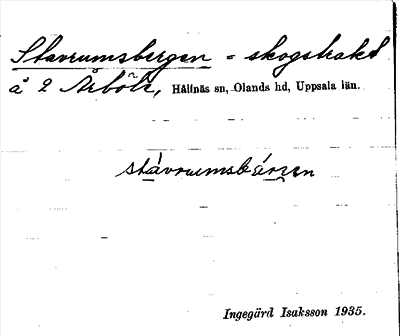 Stavrumsbergen = skogstrakt
å 2 Årböle, Hållnäs sn, Olands hd, Uppsala län.
stávrumsbǽrgen
Ingegärd Isaksson 1935.